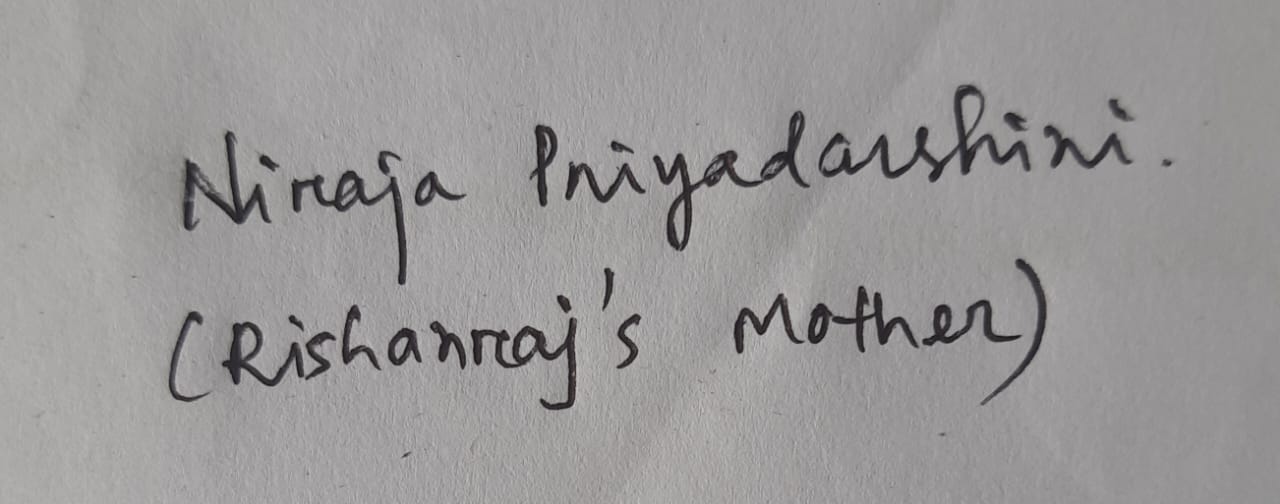 Niraja Priyadarshini.
(Rishanraj's Mother)